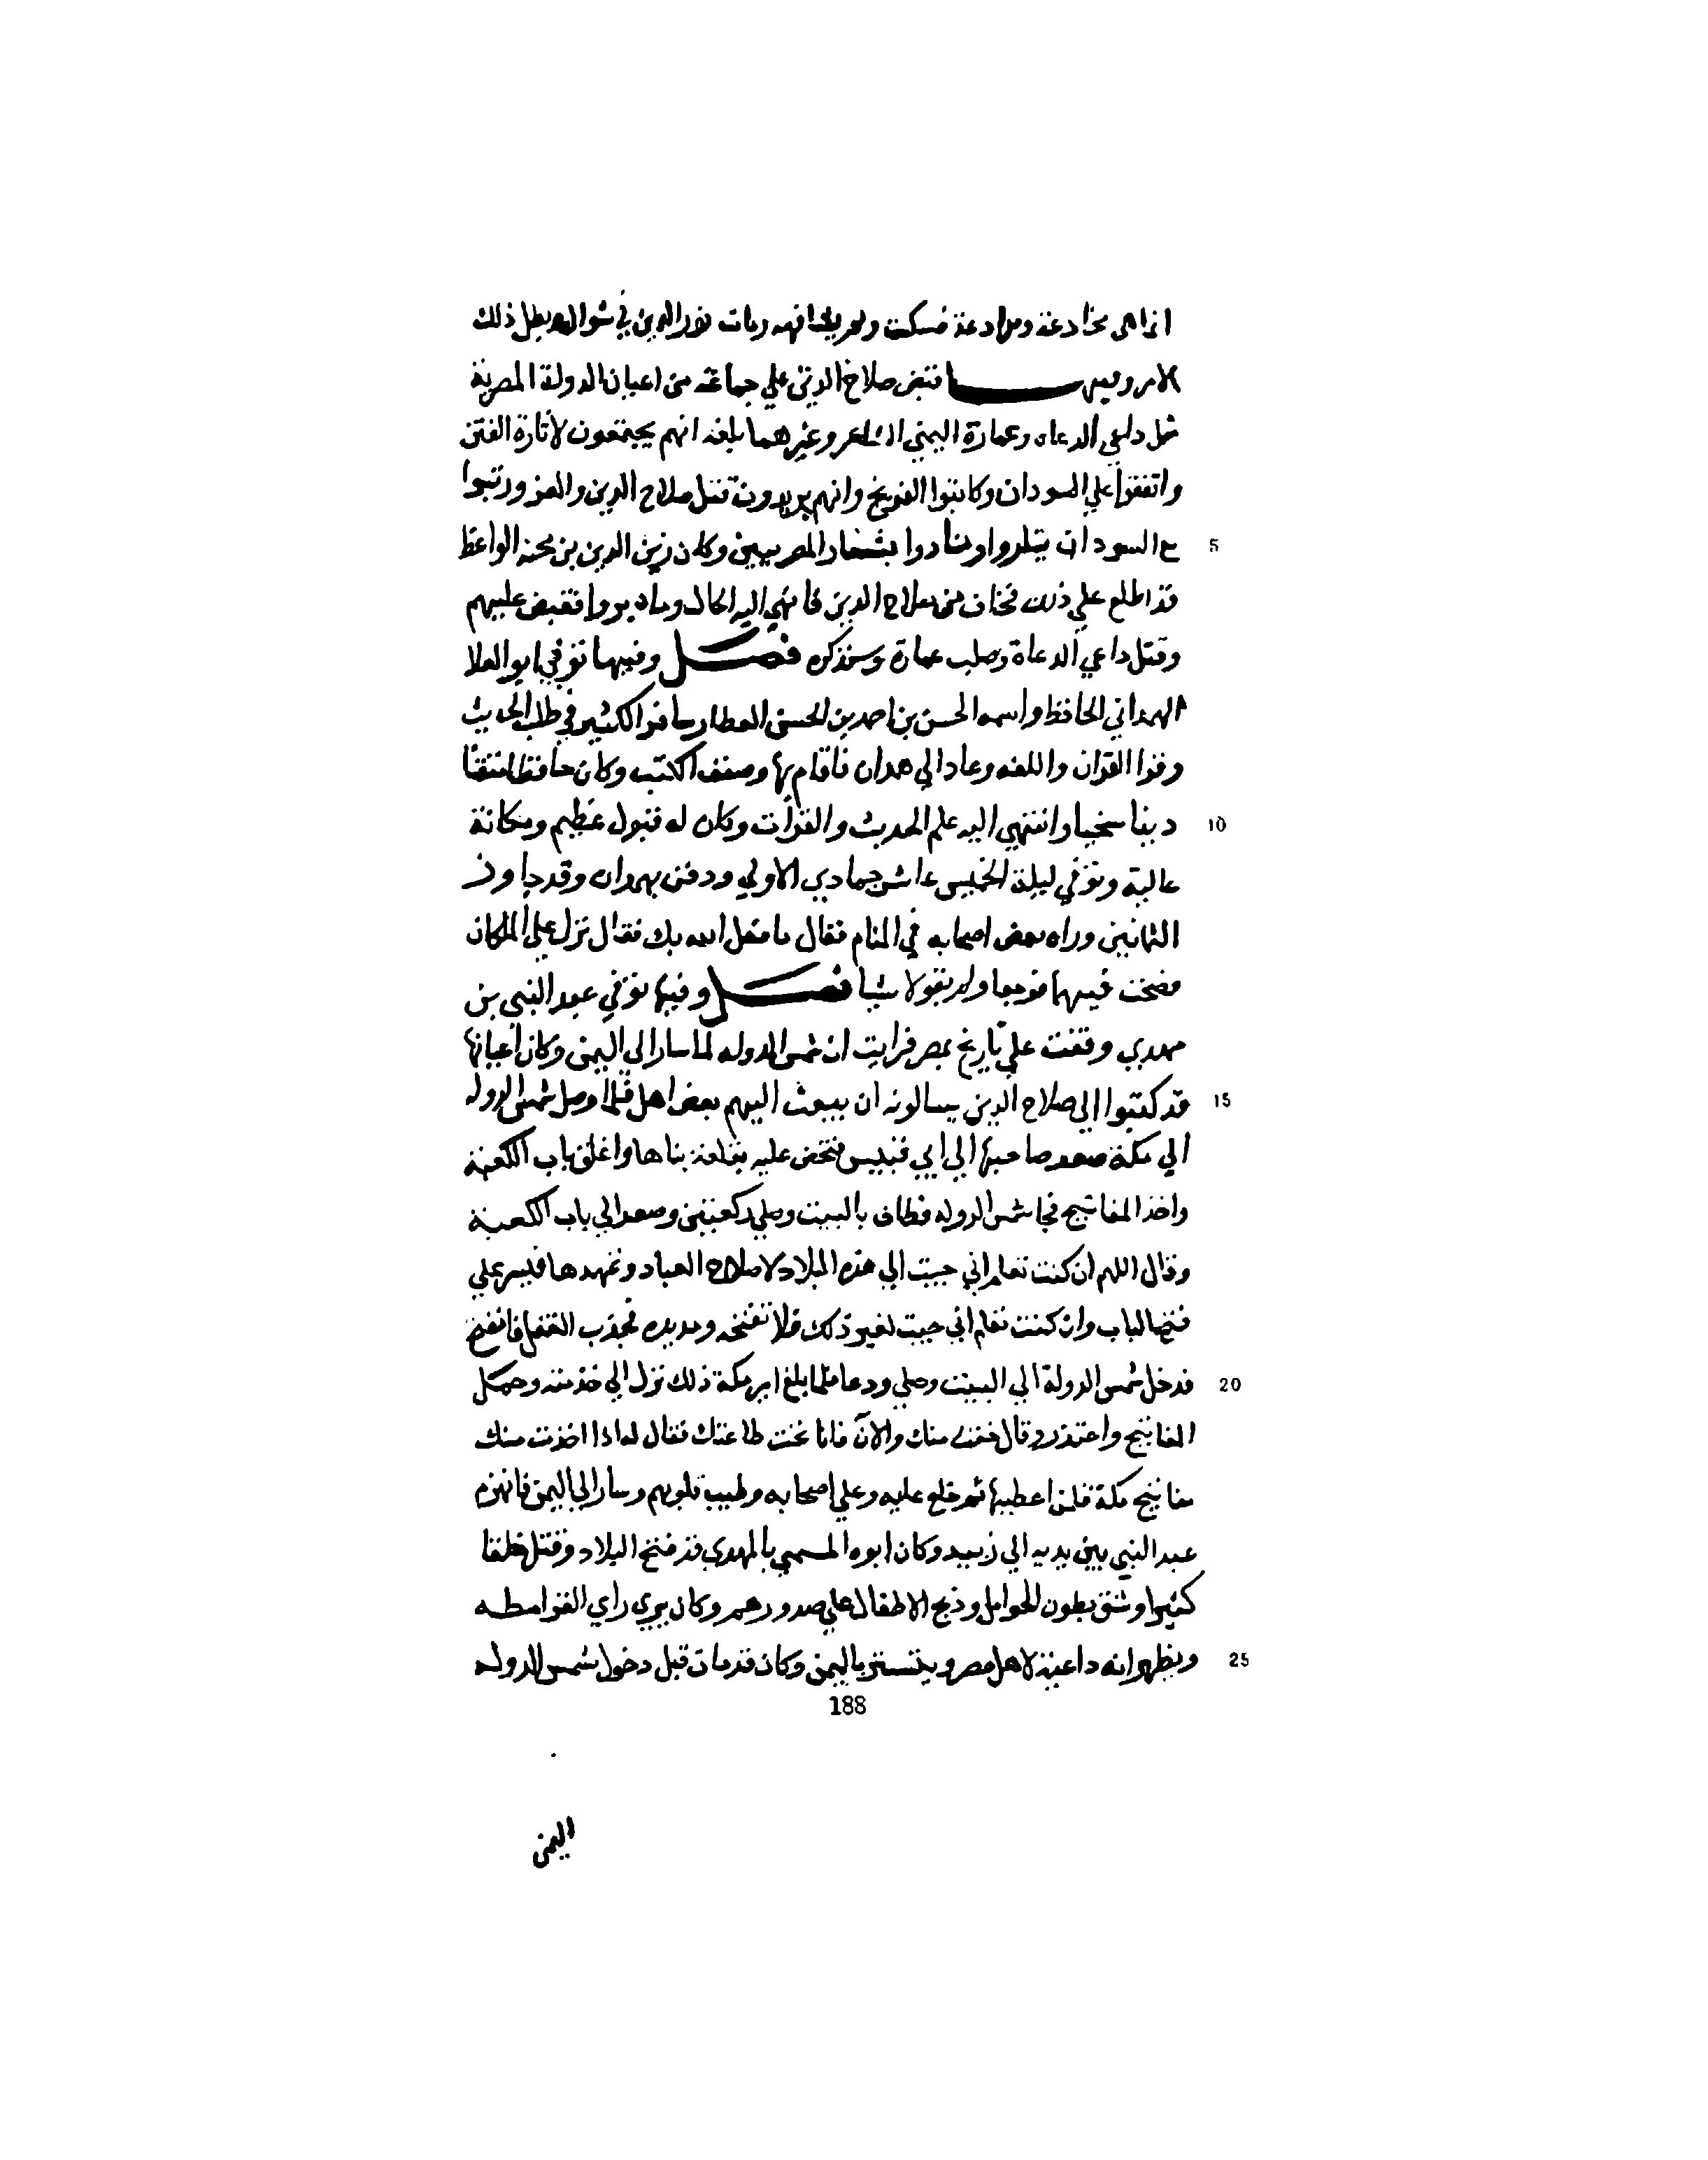 انما هى مخادعة ومواعدة فسكت ولم يخافهم ومات نور الدين في شوال وبطل ذلك
الامر وفيها قبض صلاح الدين علي جماعة من اعيان الدولة المصرية
مثل داعي الدعاه وعمارة اليمني الشاعر وغيرهما بلغه انهم يجتمعون لاثارة الفتن
واتفقوا علي السودان وكاتبوا الفرنج وانهم يريدون قتل صلاح الدين والغز ورتبوا
5 مع السودان يثوروا وينادوا بشعار المصريين وكان زين الدين بن نجيه الواعظ
قد اطلع علي ذلك فخاف من صلاح الدين فانهي اليه الحال وما دبروا فقبض عليهم
وقتل داعي الدعاة وصلب عمارة وسنذكره فصل وفيها توفي ابو العلا
الهمداني الحافظ واسمه الحسن بن احمد بن الحسن العطار سافر الكثير في طلب الحديث
وقرا القران واللغه وعاد الي همدان فاقام بها وصنف الكتب وكان حافظا متقنا
10 دينا سخيا وانتهي اليه علم الحديث والقرأت وكان له قبول عظيم ومكانة
عالية وتوفي ليلة الخميس عاشر جمادي الاولي ودفن بهمدان وقد جاوز
الثمانين وراه بعض اصحابه في المنام فقال ما فعل الله بك فقال نزل علي الملكان
فصحت فيهما فوجما ولم يقولا شيا فصل وفيها توفي عبد النبي بن
مهدي وقفت علي تاريخ بمصر فرايت ان شمس الدوله لما سار الي اليمن وكان اعيانها
15 قد كتبوا الي صلاح الدين يسالونه ان يبعث اليهم بعض اهله فلما وصل شمس الدوله
الي مكة صعد صاحبها الي ابي قبيس فتحصن عليه بقلعة بناها واغلق باب الكعبة
واخذ المفاتيح فجا شمس الدوله فطاف بالبيت وصلي ركعتين وصعد الي باب الكعبة
وقال اللهم ان كنت تعلم اني جيت الي هذه البلاد لاصلاح العباد وتمهيدها فيسر علي
فتح الباب وان كنت تعلم اني جيت لغير ذلك فلا تفتحه ومد يده فجذب القفل فانفتح
20 فدخل شمس الدولة الي البيت وصلي ودعا فلما بلغ امير مكة ذلك نزل الي خدمته وحمل
المفاتيح واعتذر وقال خفت منك والان فانا تحت طاعتك فقال له اذا اخذت منك
مفاتيح مكة فلمن اعطيها ثم خلع عليه وعلي اصحابه وطيب قلوبهم وسار الي اليمن فانهزم
عبد النبي بين يديه الي زبيد وكان ابوه المسمي بالمهدي قد فتح البلاد وقتل خلقا
كثيرا وشق بطون الحوامل وذبح الاطفال علي صدورهم وكان يري راي القرامطه
25 ويظهر انه داعية لاهل مصر ويتستر باليمن وكان قد مات قبل دخول شمس الدوله
188
اليمن